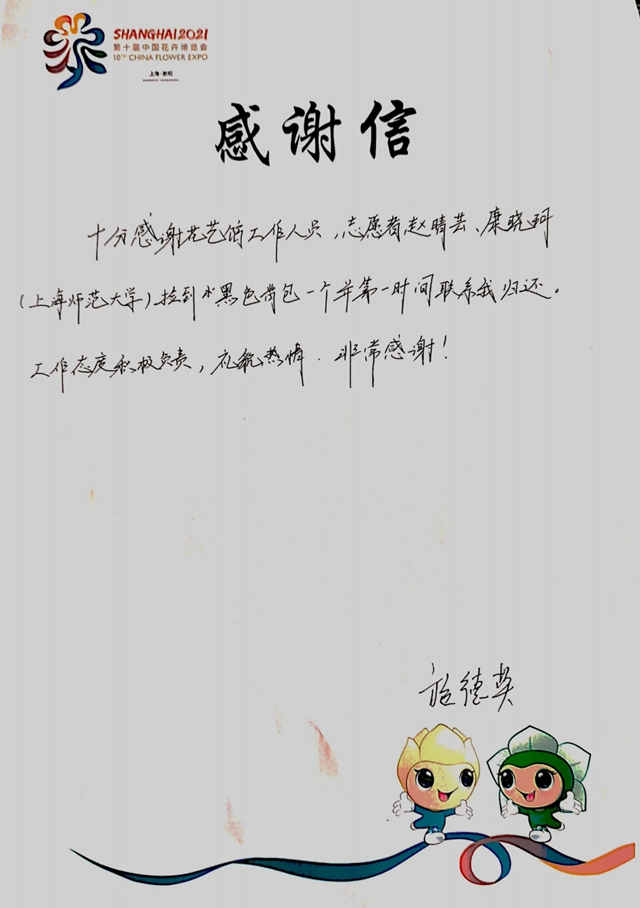 SHANGHAI2021
第十届中国花卉博览会
10TH CHINA FLOWER EXPO
上海·崇明
感谢信
十分感谢花艺馆工作人员,志愿者赵晴芸、糜晓珂
(上海师范大学)捡到小黑色背包一个并第一时间联系我归还。
工作态度积极负责,礼貌热情.非常感谢!
德英